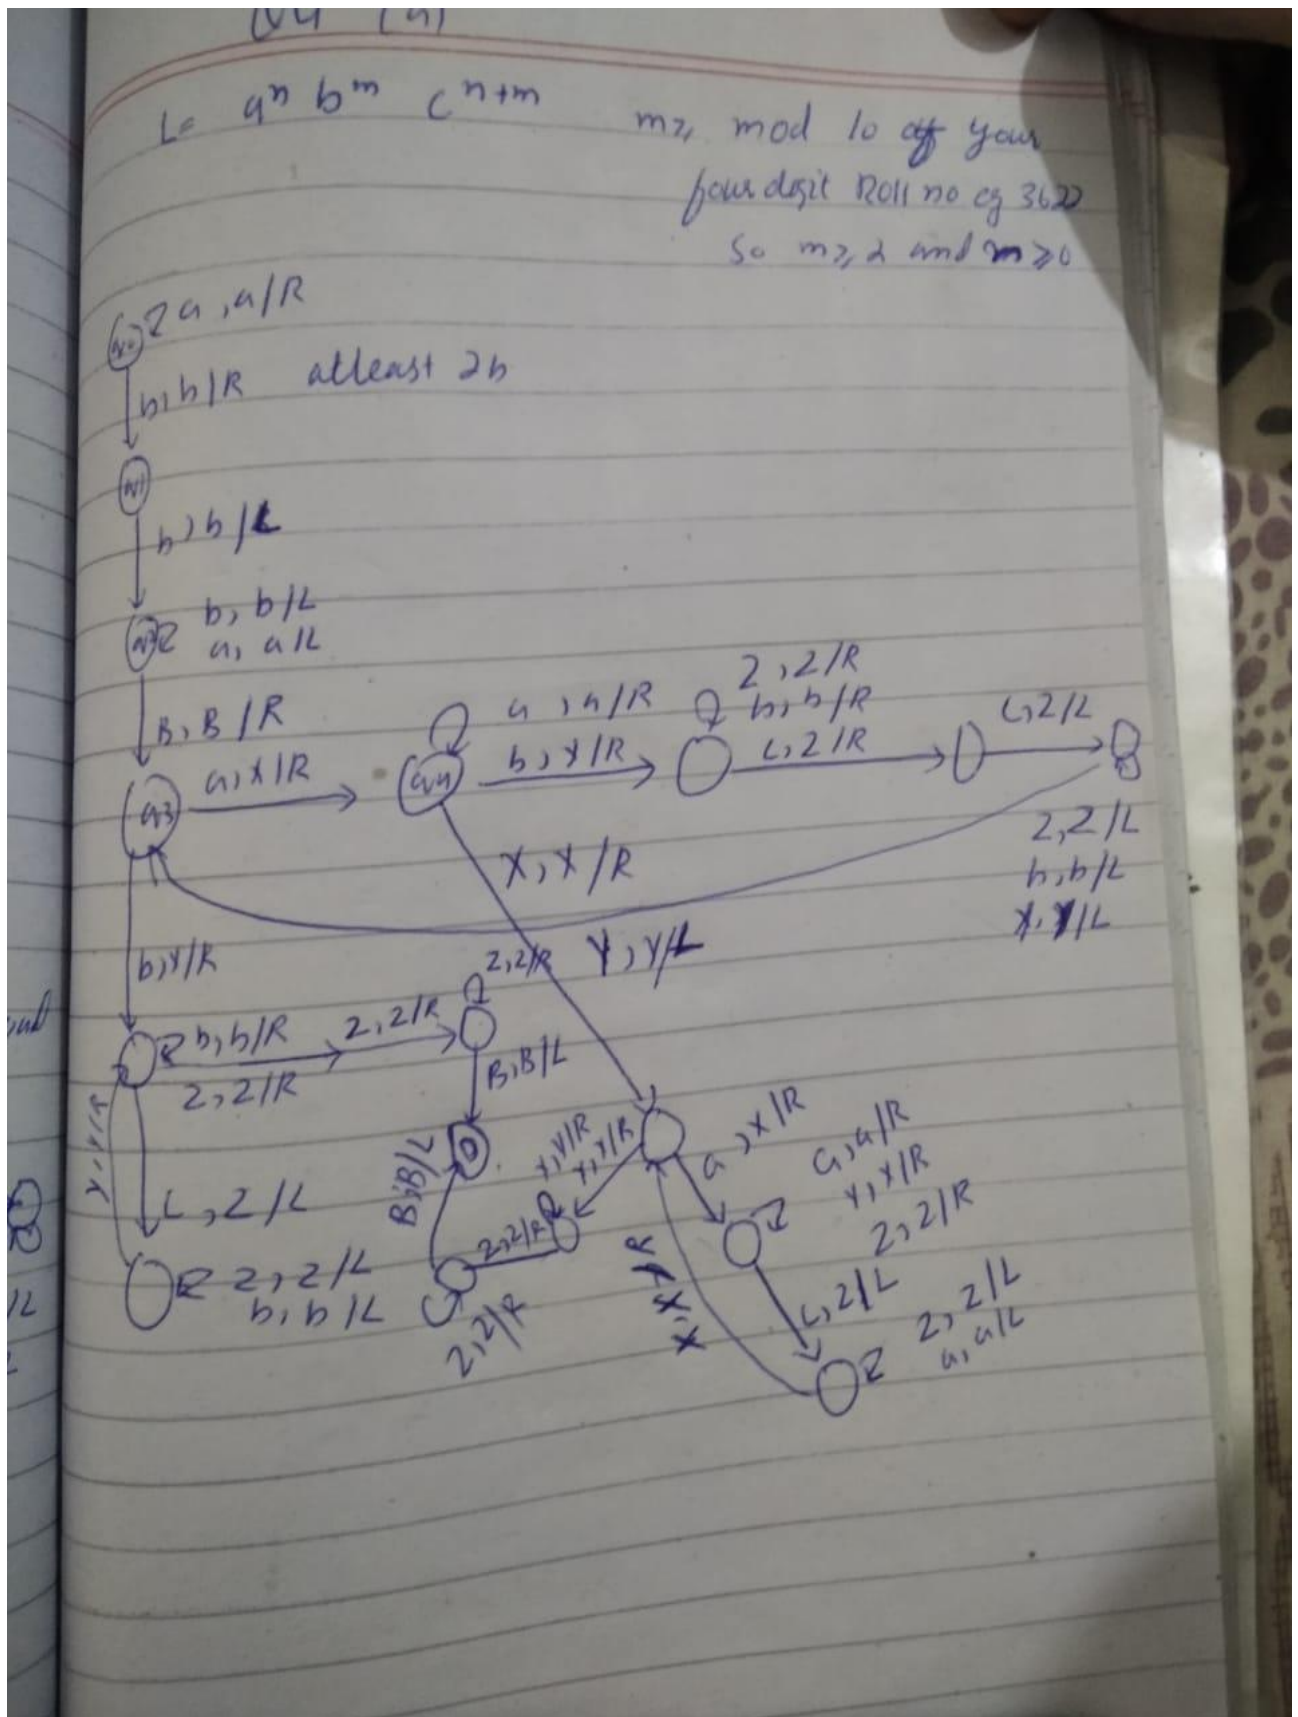 Q4 (a)
L = a^n b^m c^n+m m≥ mod 10 of your
four digit Roll no eg 3622
So m≥2 and m≥0
a, a/R
b, b/R atleast 2b
q1
b, b/L
b, b/L
a, a/L
B, B/R
q3
a, X/R
a, a/R
q4
b, Y/R
Z, Z/R
b, b/R
c, Z/R
c, Z/L
Z, Z/L
b, b/L
X, X/R
Y, Y/L
b, Y/R
b, b/R
Z, Z/R
Z, Z/R
Z, Z/R
B, B/L
Y, Y/R
c, Z/L
Z, Z/L
b, b/L
B, B/L
Z, Z/R
Z, Z/R
Y, Y/R
a, X/R
a, a/R
Y, Y/R
Z, Z/R
c, Z/L
Z, Z/L
a, a/L
X, X/R